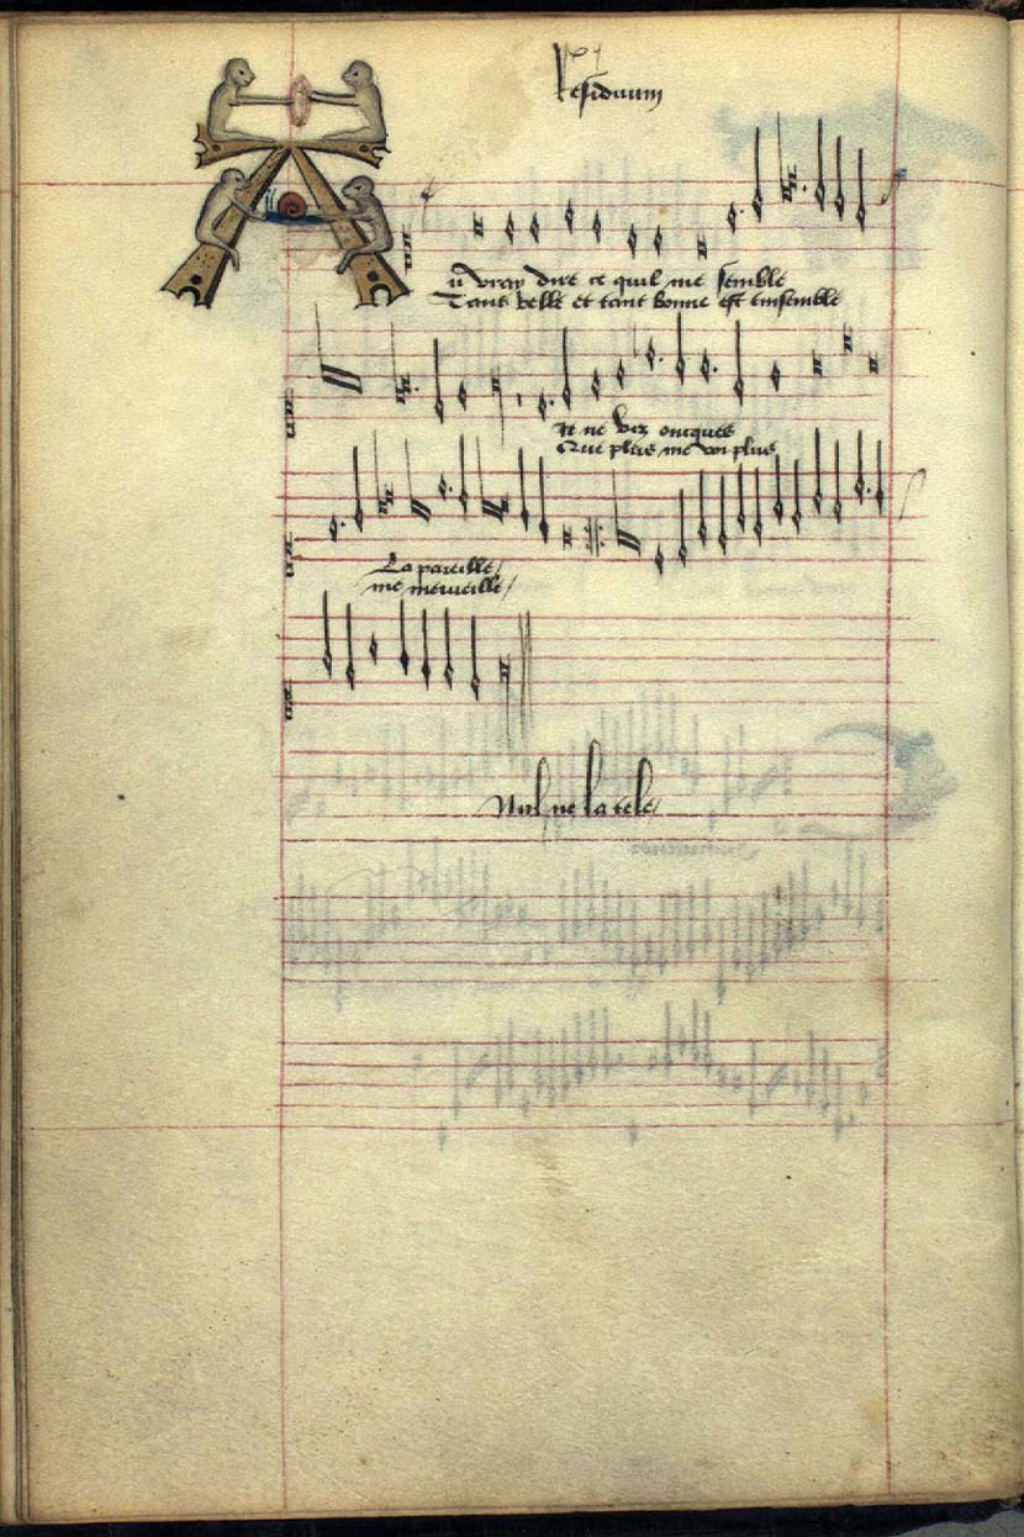 Residuum
u vray dire ce quil me semble
Tant belle et tant bonne est ensemble
Je ne vez oncques
Que plus me voi plus
La pareille
me merveille
Nul ne la tele